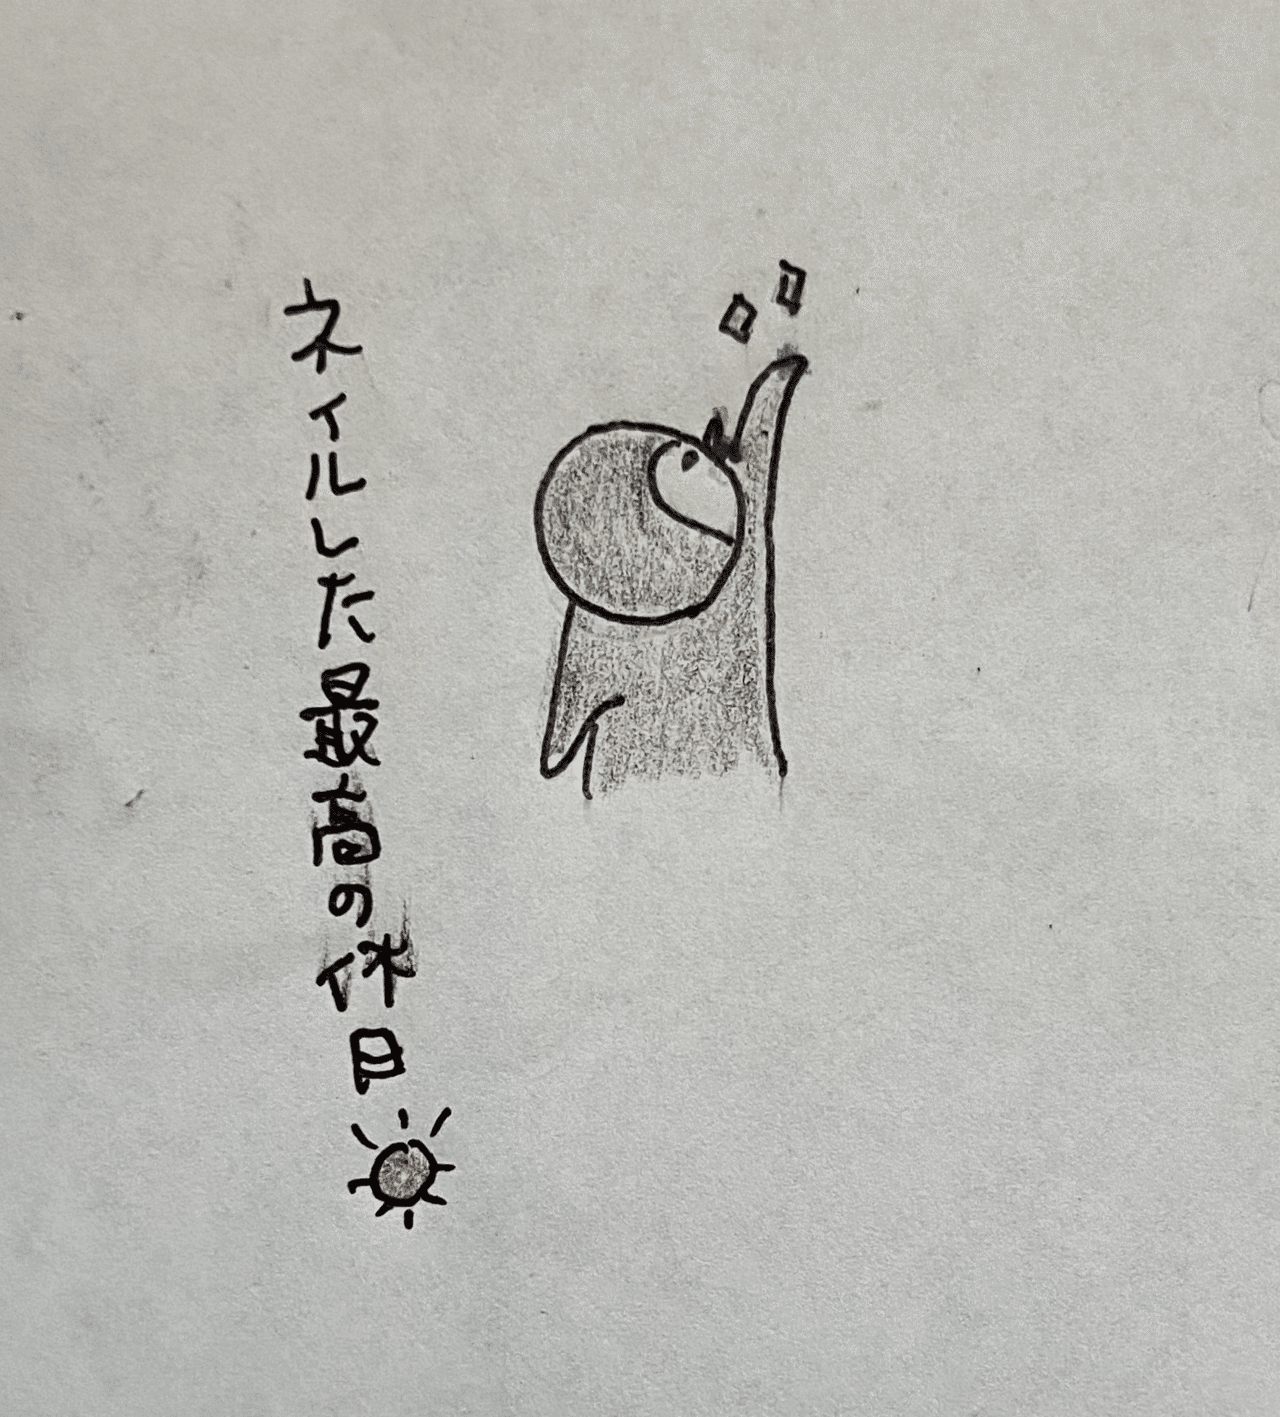 ネイルした最高の休日